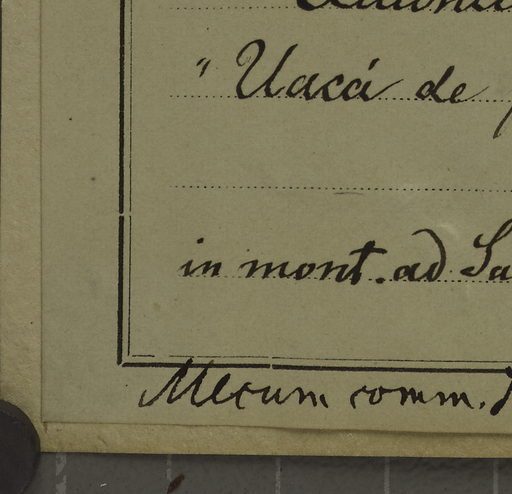 "Uacá de
in mont. ad Sa
Mecum comm.